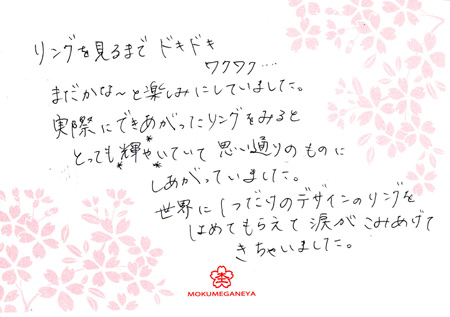 リングを見るまで ドキドキ
ワクワク…
まだかな～と楽しみにしていました。
実際にできあがったリングをみると
とっても輝やいていて 思い通りのものに
しあがっていました。
世界に1つだけのデザインのリングを
はめてもらえて 涙が こみあげて
きちゃいました。
MOKUMEGANEYA